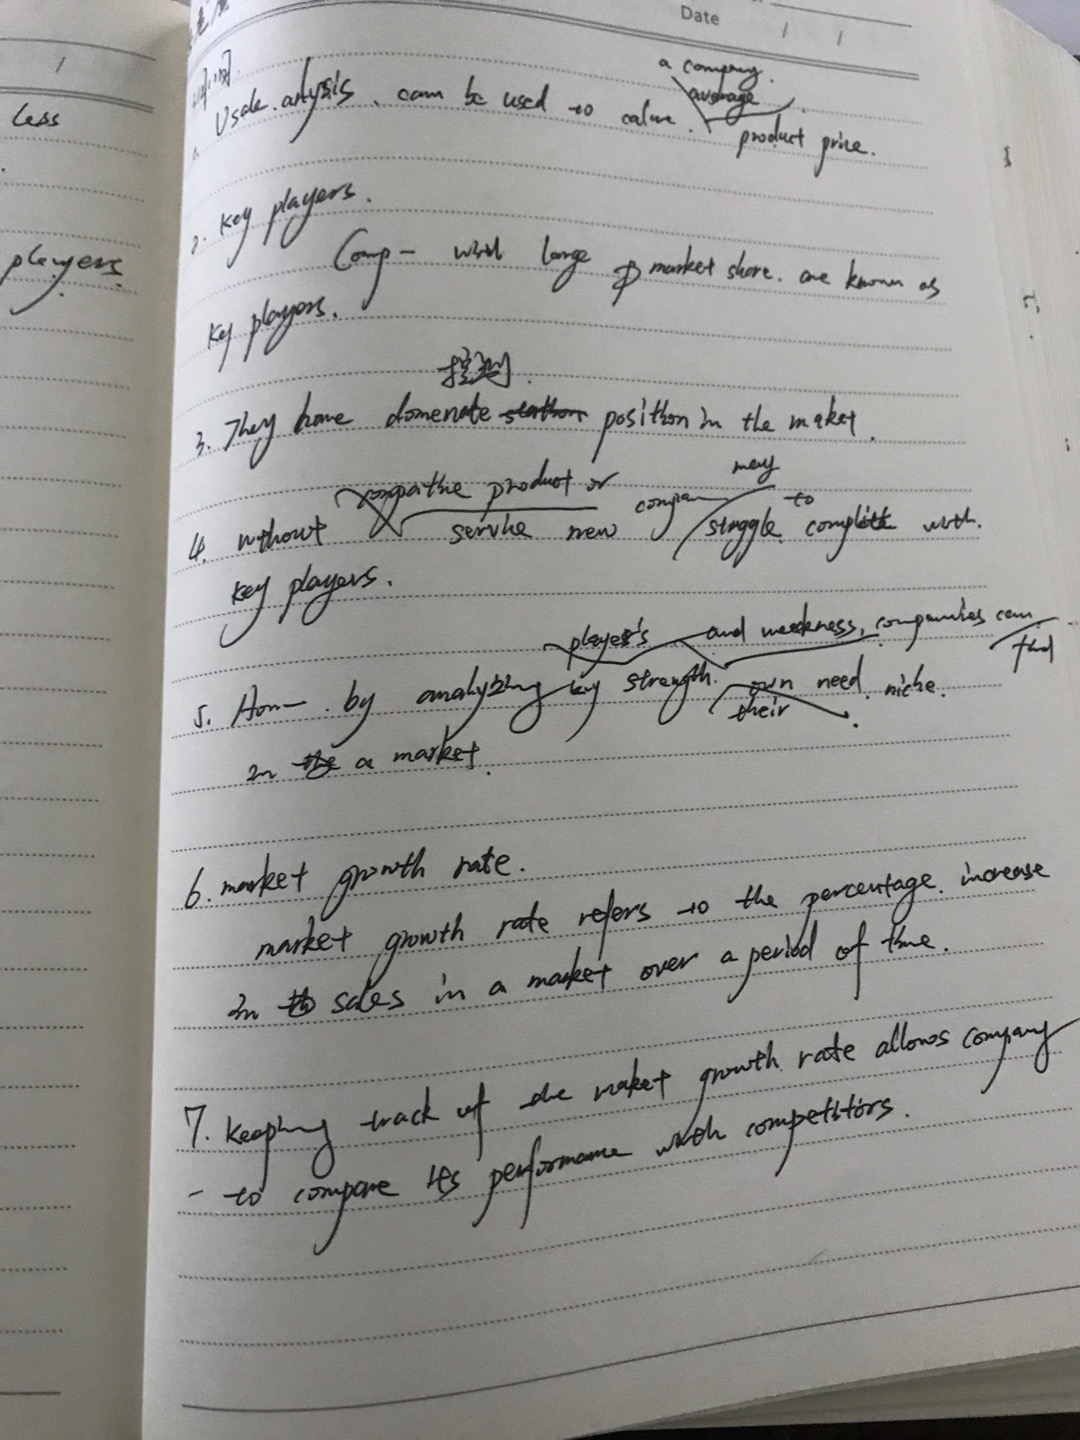 Date / /
less
players.
a company.
average
1. Usale. anlysis. cam be used to calure. product price.
2. Key players.
Comp— with large market share. are known as
key players.
控制.
3. They have domenate position in the market.
product or may
4. without service new compan— struggle to with.
key players.
player's and weekness, companies can
find
5. How— by analyzing key strength. own need niche.
their
in a market.
6. market growth rate.
market growth rate refers to the percentage. increase
in sales in a market over a period of time.
7. Keeping track of the market growth rate allows company
- to compare its performance with competitors.